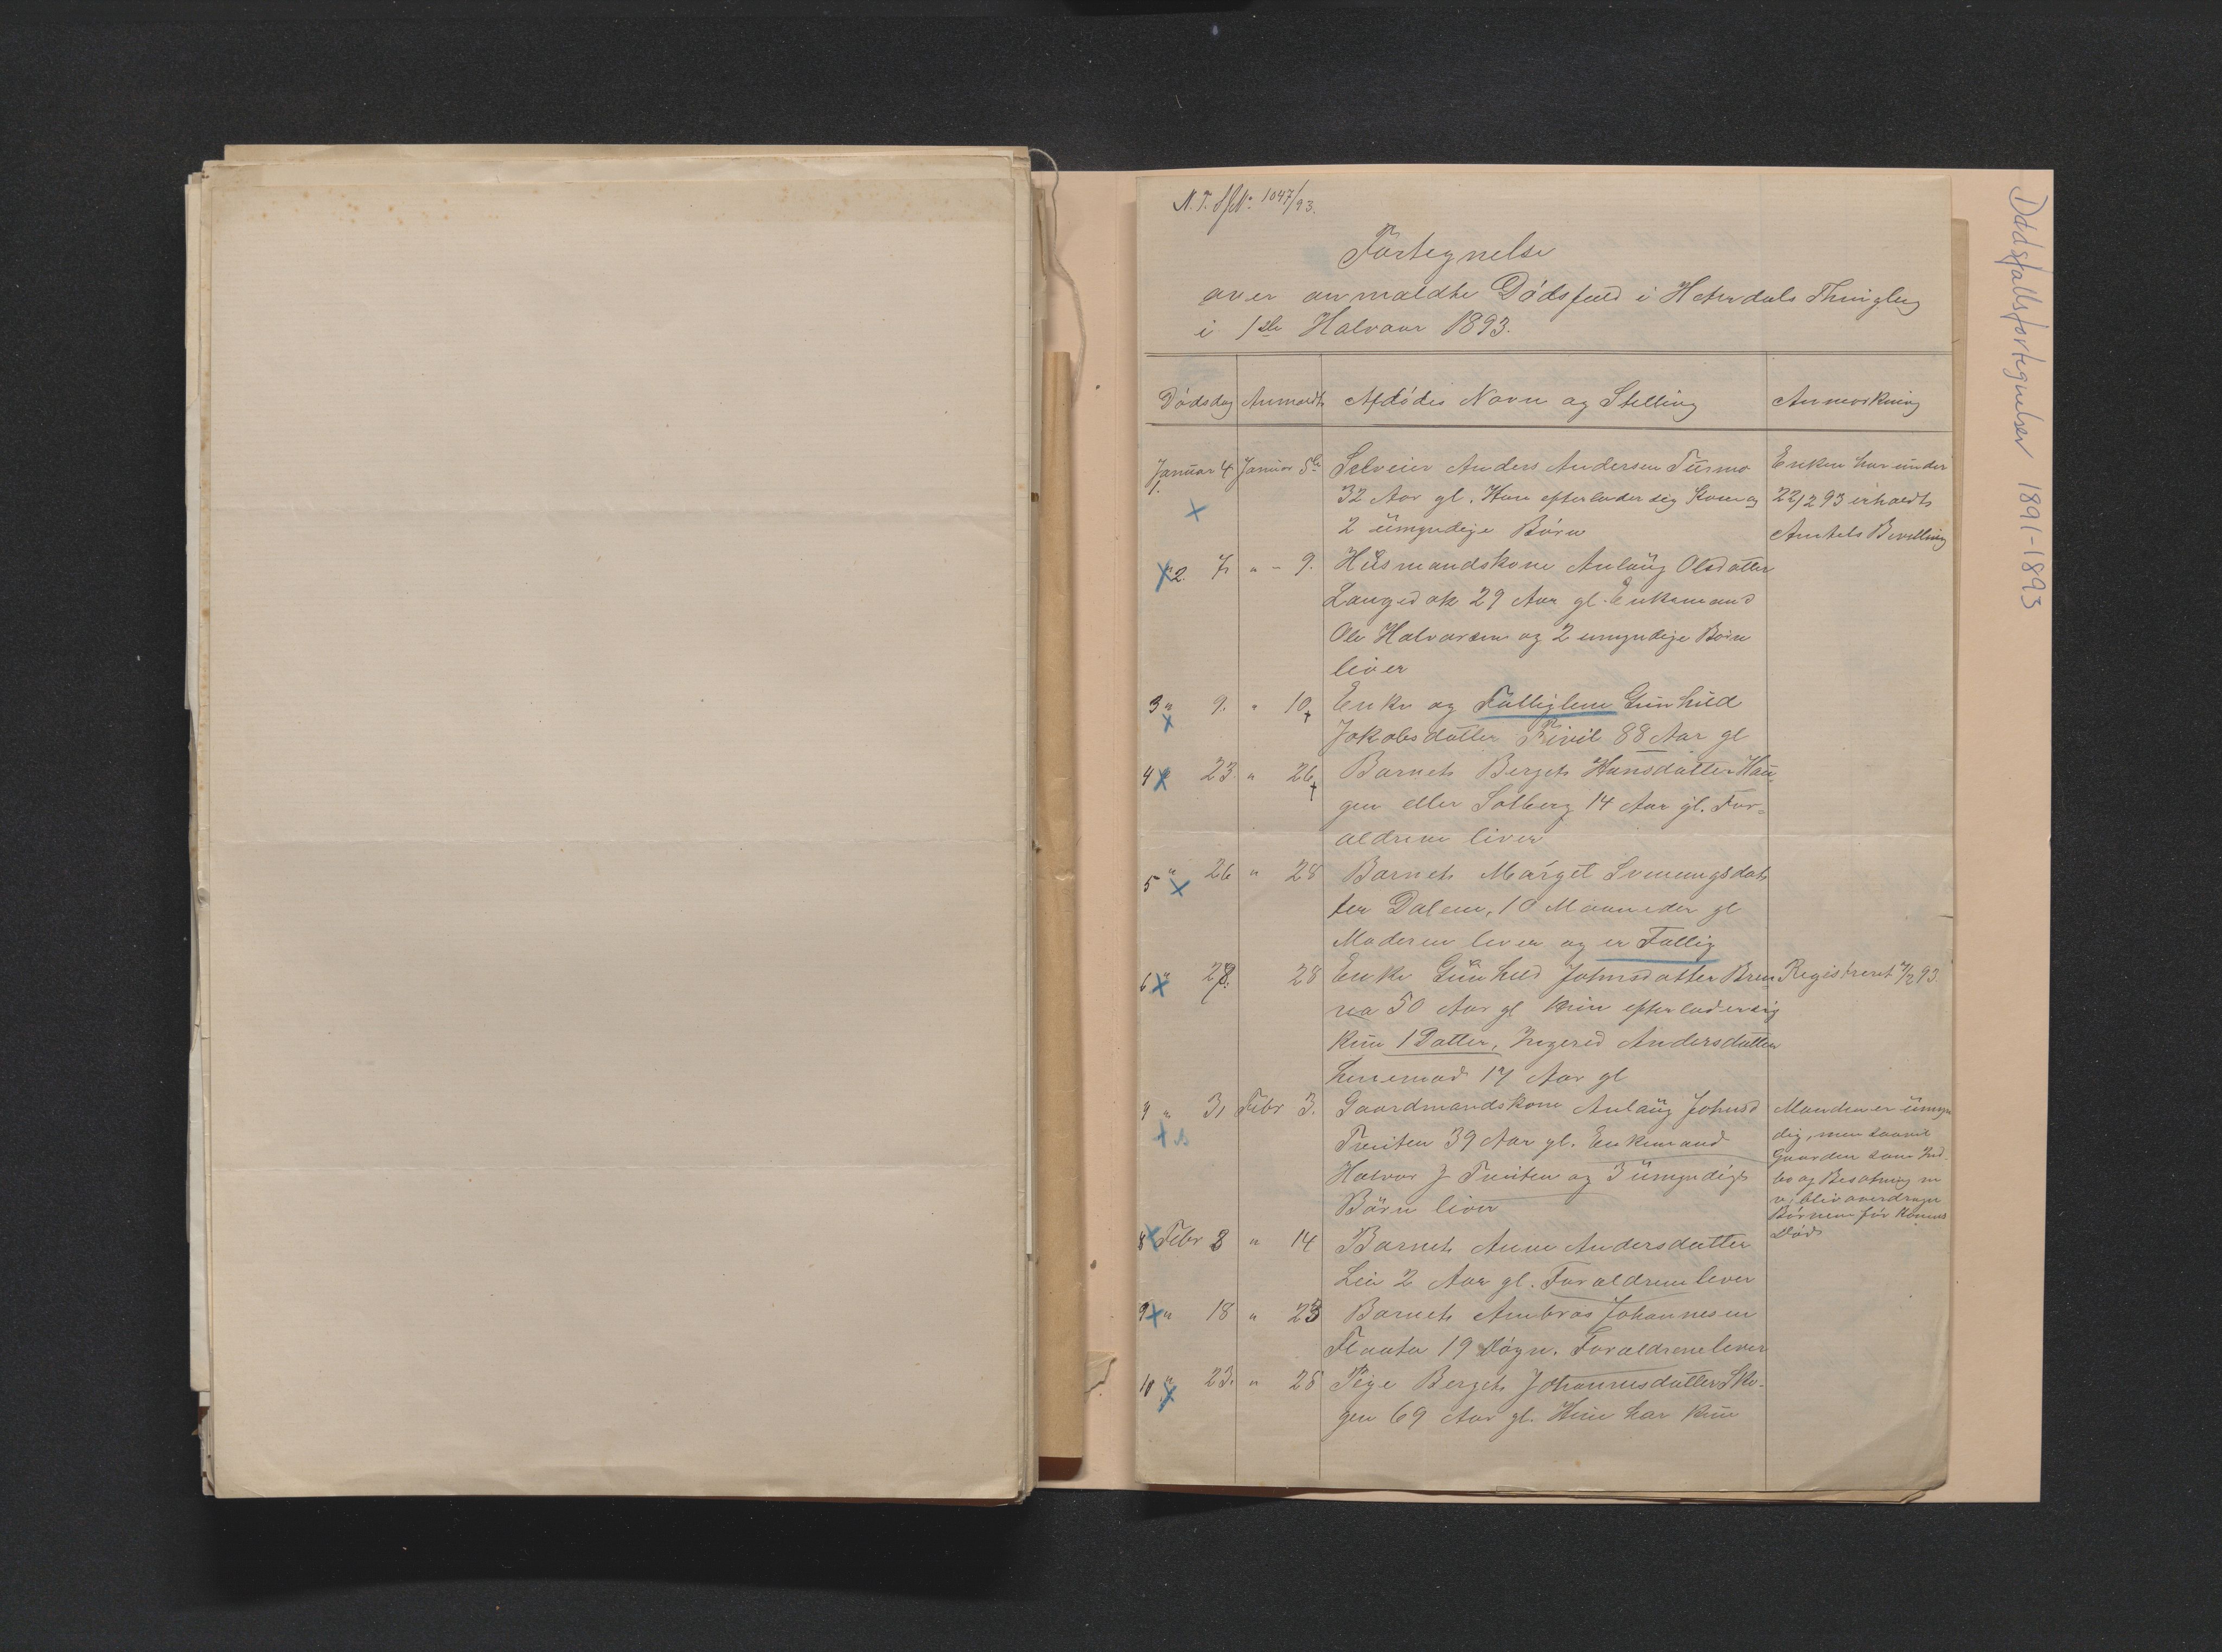 N. T. 1047/93.
Fortegnelse
over anmeldte Dødsfald i Hiterdals Thinglag
i 1ste Halvaar 1893.
Dødsdag Anmeldt Afdødes Navn og Stilling Anmerkning
Januar 4 Januar 5te Selveier Anders Andersen Turmo Enken har under
1. 32 Aar gl. Han efterlader sig Kone og 22/2 93 erholdt
2 umyndige Børn Amtets Bevilling
2. 7 " - 9. Husmandskone Anlaug Olsdatter
Langedok 29 Aar gl. Enkemand
Ole Halvorsen og 2 umyndige Børn
lever
3 " 9. " 10 Enke og Fattiglem Gunhild
Jakobsdatter 88 Aar gl
4 " 23 " 26 Barnet Berget Hansdatter Hau-
gen eller Solberg 14 Aar gl. For-
ældrene lever
5 " 26 " 28 Barnet Margit Svenungsdat-
ter Dalen, 10 Maaneder gl
Moderen lever og er Fattig
6 " 28 Enke Gunhild Johnsdatter Bren- Registreret 7/2 93.
na 50 Aar gl Hun efterlader sig
kun 1 Datter, Ingerid Andersdatter
henimod 17 Aar gl
" 31 Febr 3. Gaardmandskone Anlaug Johnsd Manden er umyn
Tveiten 39 Aar gl. Enkemand dig, men saavel
Halvor J Tveiten og 3 umyndige Gaarden som Ind-
Børn lever bo og Besætning m
v. blev overdragen
Børnene før Konens
Død
8 Febr 8 " 14 Barnet Anne Andersdatter
Lia 2 Aar gl. Forældrene lever
9 " 18 " 23 Barnet Ambros Johannesen
Flaata 19 Døgn. Forældrene lever
10 " 23. " 28 Pige Berget Johannesdatter Sko-
gen 69 Aar gl. Hun har kun
Dødsfallsfortegnelser 1891-1893